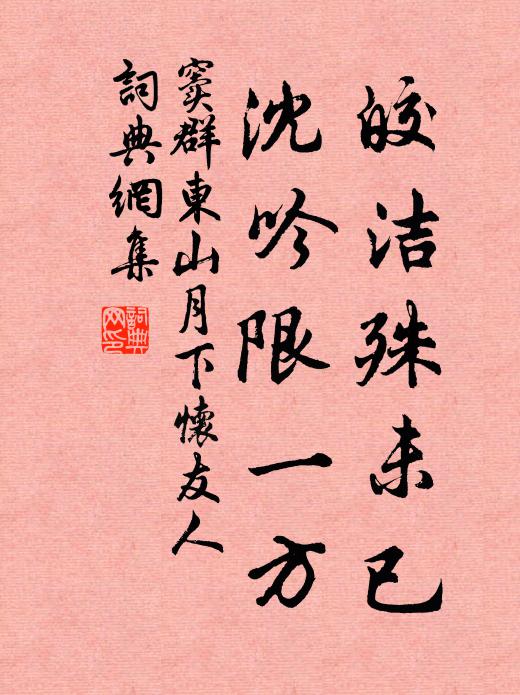 皎洁殊未已
沈吟限一方
窦群東山月下懷友人
詞典網集
詞典
网印